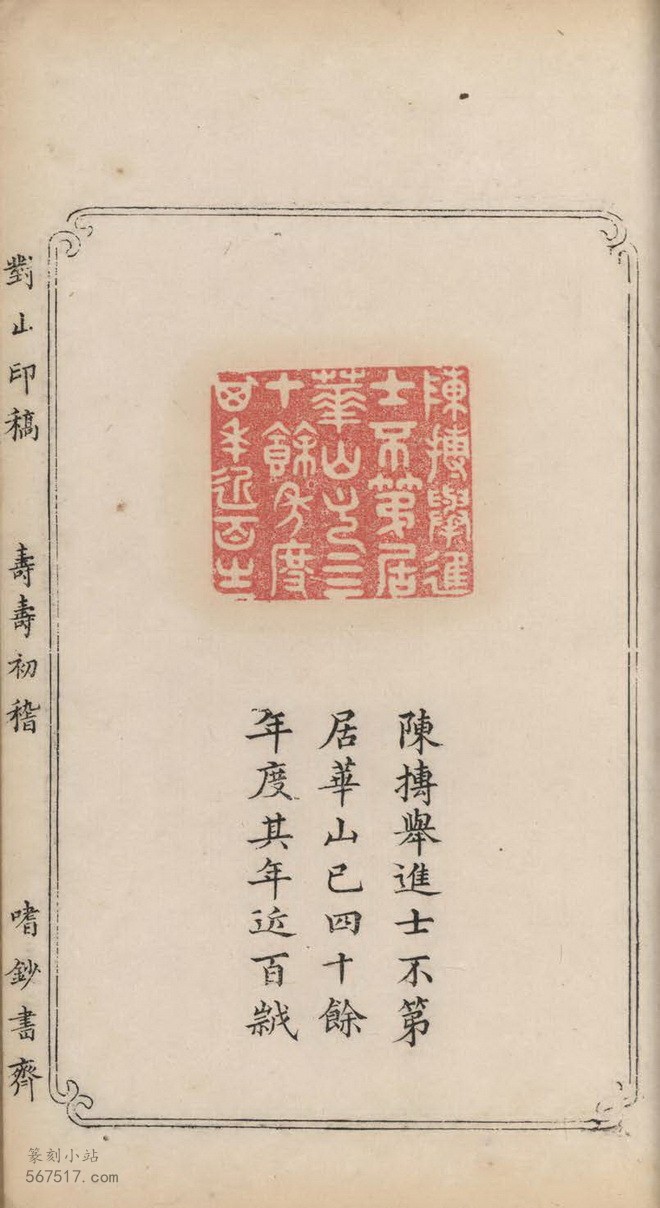 陳摶舉進
士不第居
華山已三
十餘年度
其年近百
陳摶舉進士不第
居華山已四十餘
年度其年近百歲
對山印稿
壽壽初稽
嗜鈔書齋
篆刻小站
567517.com